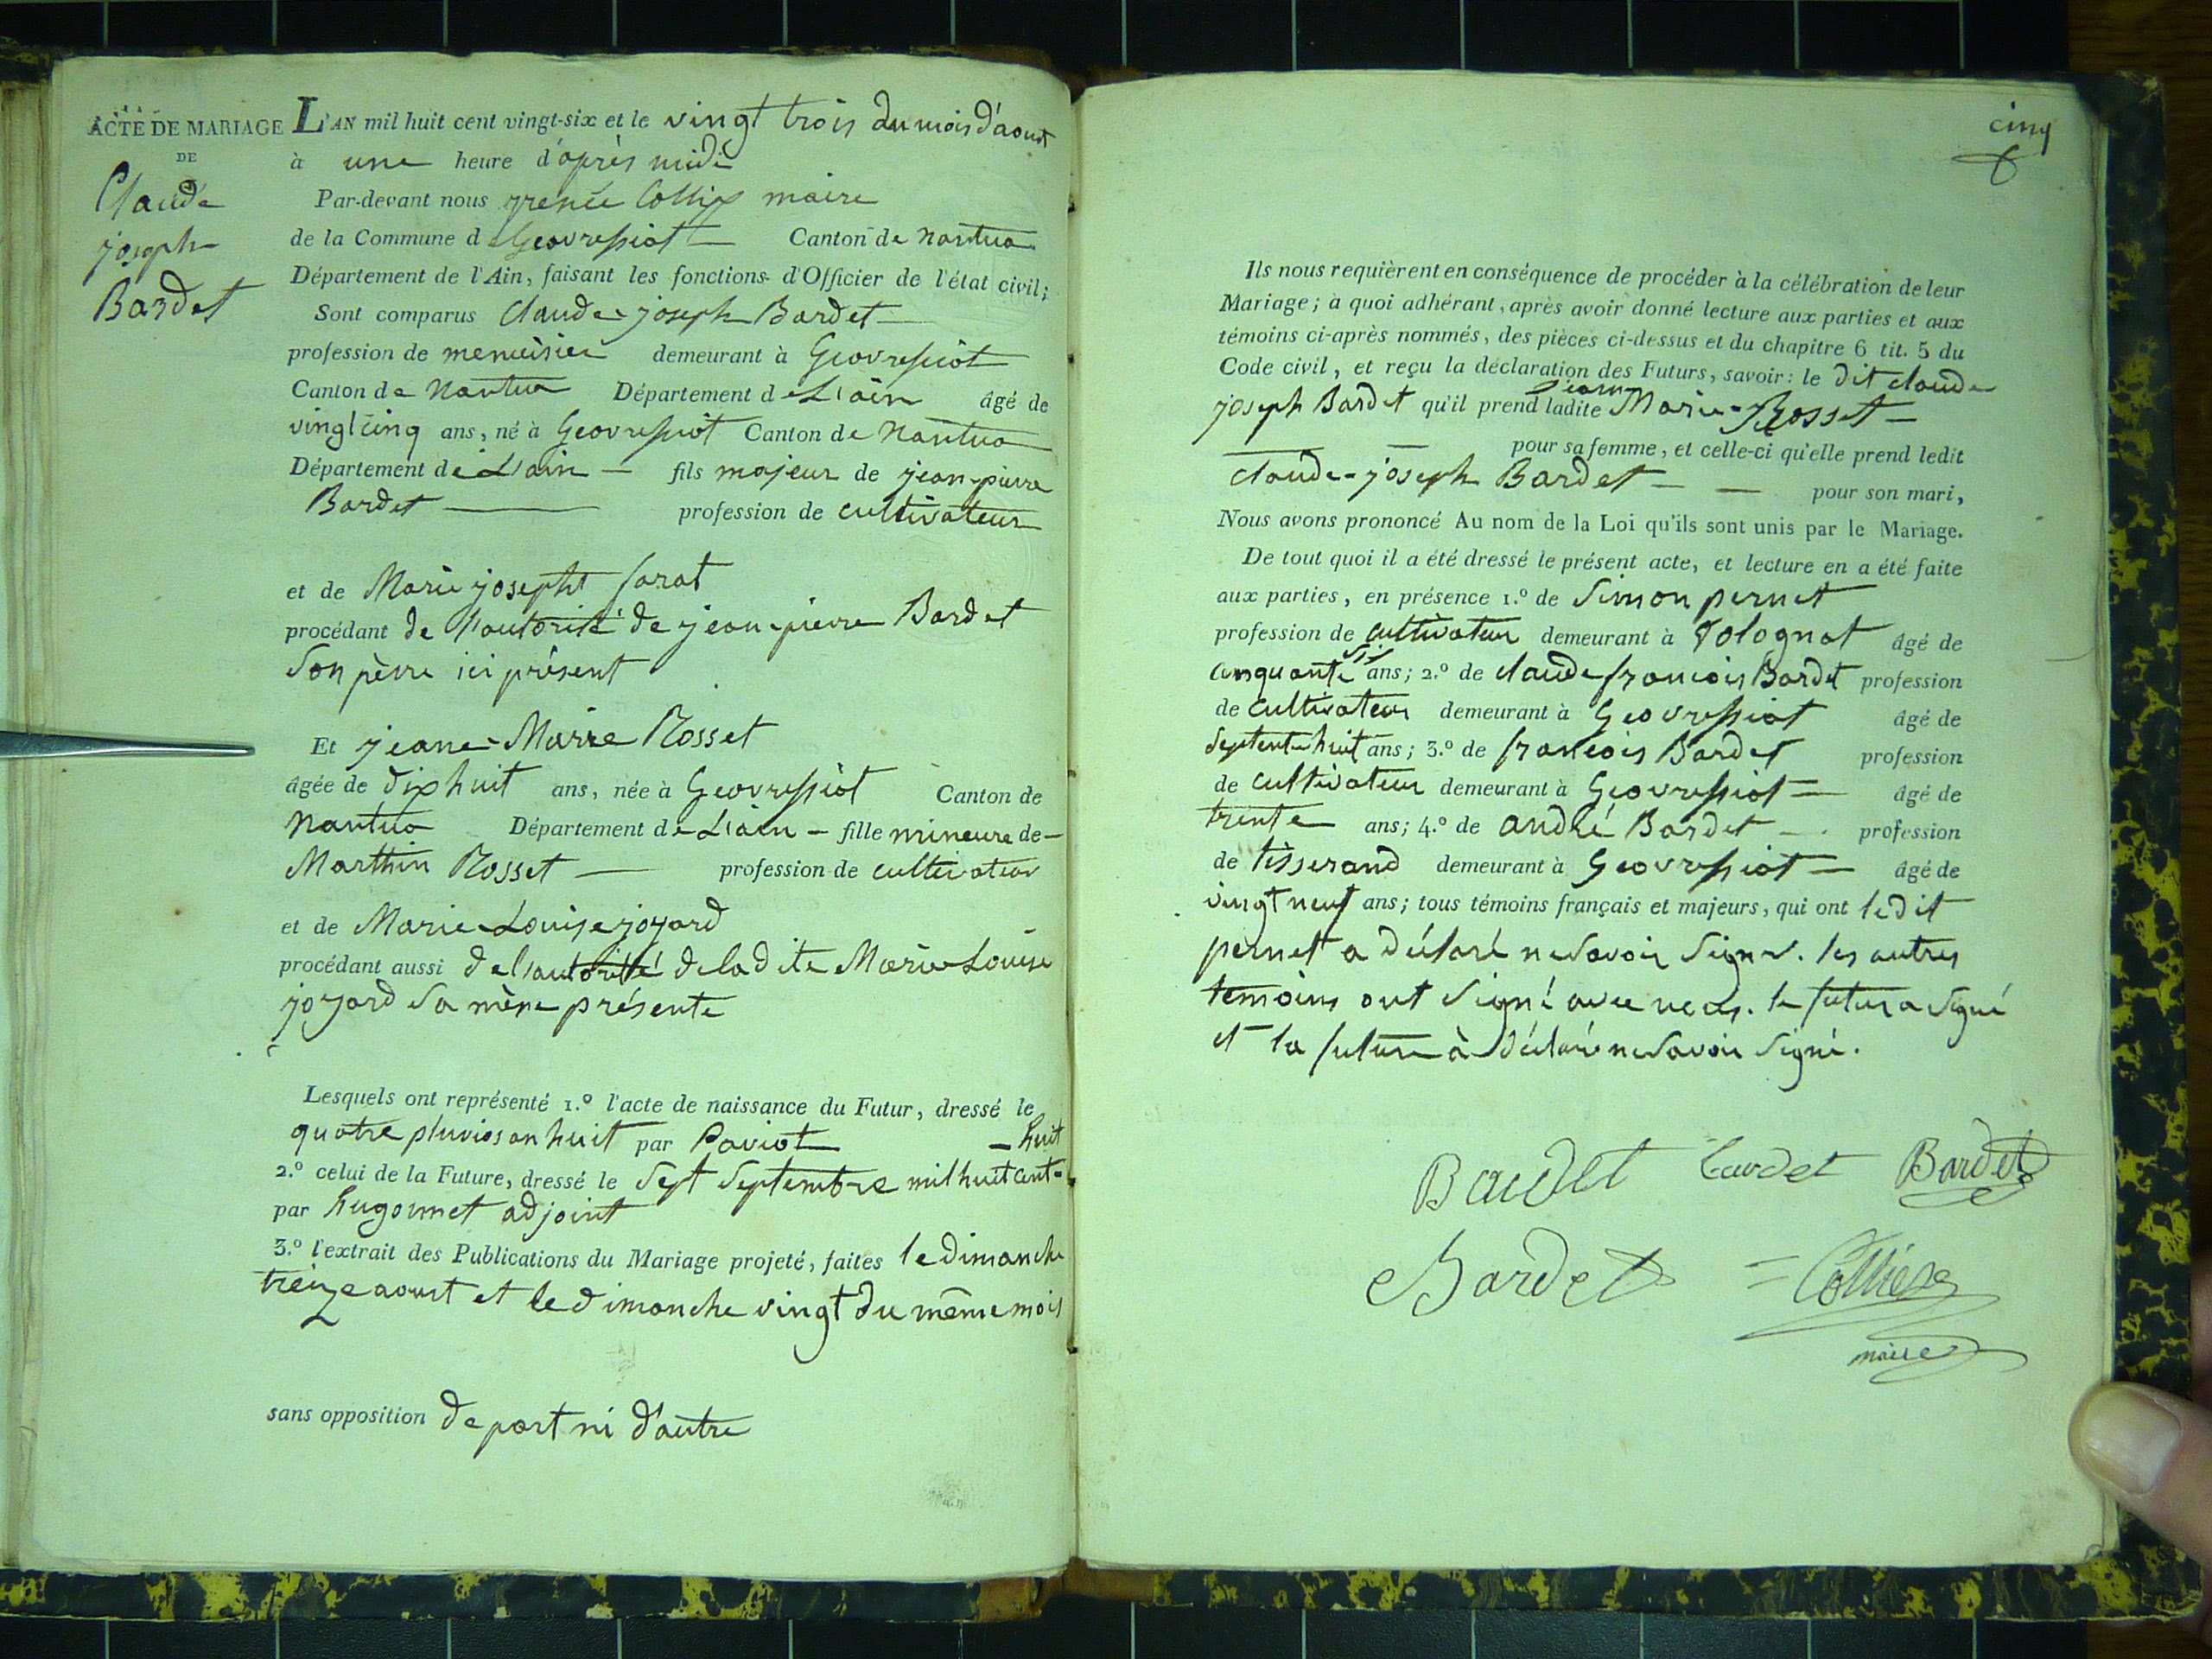 ACTE DE MARIAGE
DE
Claude
joseph
Bardet
L'AN mil huit cent vingt-six et le vingt trois du mois d'aoust
à une heure d'après midi
Par-devant nous maire
de la Commune de Geovressiat Canton de nantua
Département de l'Ain, faisant les fonctions d'Officier de l'état civil;
Sont comparus Claude-joseph Bardet
profession de menuisier demeurant à Geovressiat
Canton de nantua Département de L'ain âgé de
vingt cinq ans, né à Geovressiat Canton de nantua
Département de L'ain — fils majeur de jean-pierre
Bardet — profession de cultivateur
et de Marie josepht
procédant de l'autorité de jean-pierre Bardet
Son père ici présent
Et jeane-Marie Rosset
âgée de dix huit ans, née à Geovressiat Canton de
nantua Département de L'ain — fille mineure de —
Marthin Rosset — profession de cultivateur
et de Marie-Louise joyard
procédant aussi de l'autorité de ladite Marie-Louise
joyard sa mère présente
Lesquels ont représenté 1.º l'acte de naissance du Futur, dressé le
quatre pluvios an huit par Paviot
2.º celui de la Future, dressé le Sept Septembre mil huit cent = huit
par hugonnet adjoint
3.º l'extrait des Publications du Mariage projeté, faites le dimanche
treize aoust et le dimanche vingt du même mois
sans opposition de part ni d'autre
cinq
Ils nous requièrent en conséquence de procéder à la célébration de leur
Mariage; à quoi adhérant, après avoir donné lecture aux parties et aux
témoins ci-après nommés, des pièces ci-dessus et du chapitre 6 tit. 5 du
Code civil, et reçu la déclaration des Futurs, savoir: le dit claude
joseph Bardet qu'il prend ladite jeane Marie-Rosset —
pour sa femme, et celle-ci qu'elle prend ledit
claude-joseph Bardet — — pour son mari,
Nous avons prononcé Au nom de la Loi qu'ils sont unis par le Mariage.
De tout quoi il a été dressé le présent acte, et lecture en a été faite
aux parties, en présence 1.º de Simon pernet
profession de cultivateur demeurant à Volognat âgé de
cinquante six ans; 2.º de claude francois Bardet profession
de cultivateur demeurant à Geovressiat âgé de
septente huit ans; 3.º de francois Bardet profession
de cultivateur demeurant à Geovressiat = âgé de
trente ans; 4.º de andré Bardet — profession
de tisserand demeurant à Geovressiat — âgé de
vingt neuf ans; tous témoins français et majeurs, qui ont ledit
pernet a déclaré ne savoir signer. les autres
temoins ont signé avec nous. le futur a signé
et la future à déclaré ne savoir signé.
Bardet Bardet Bardet
Bardet
maire